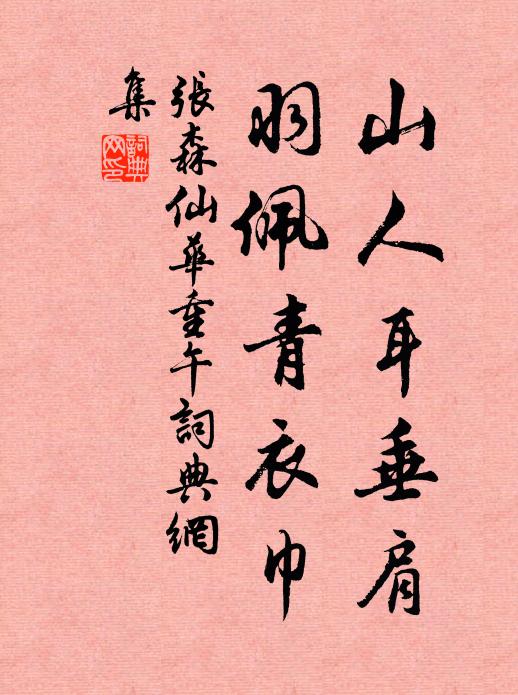 山人耳垂肩
羽佩青衣巾
張森仙華重午詞典網
集
詞典
网印